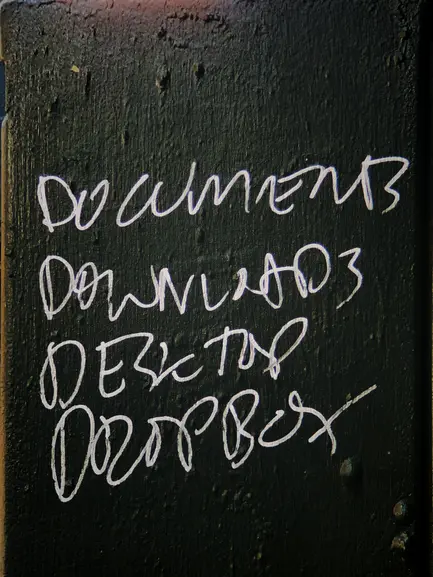 DOCUMENTS
DOWNLOADS
DESKTOP
DROPBOX